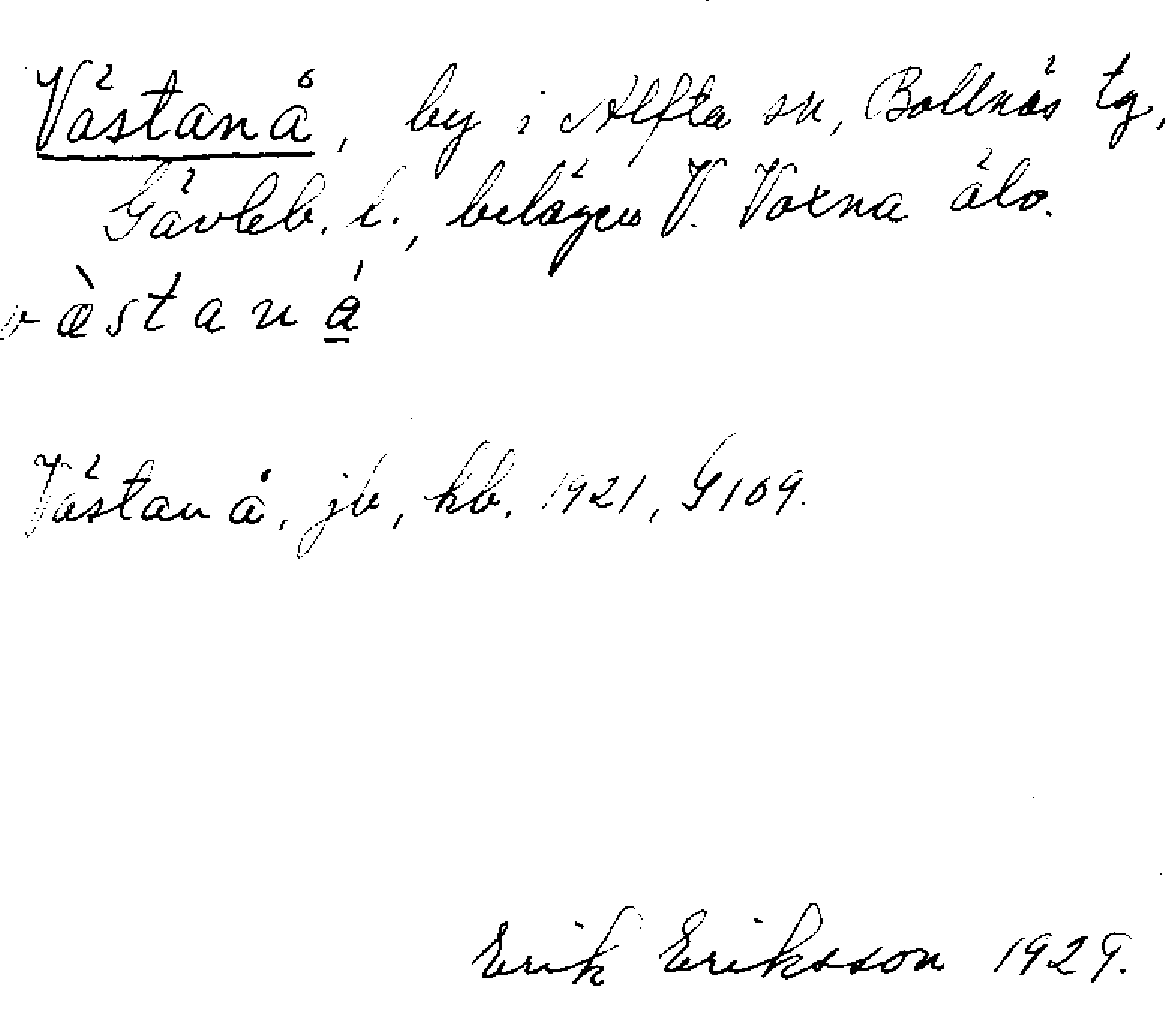 Västanå, by i Alfta sn, Bollnäs tg,
Gävleb. l., belägen V. Voxna älv.
vӕ̀staná̱
Västanå, jb, kb. 1921, G109.
Erik Eriksson 1929.